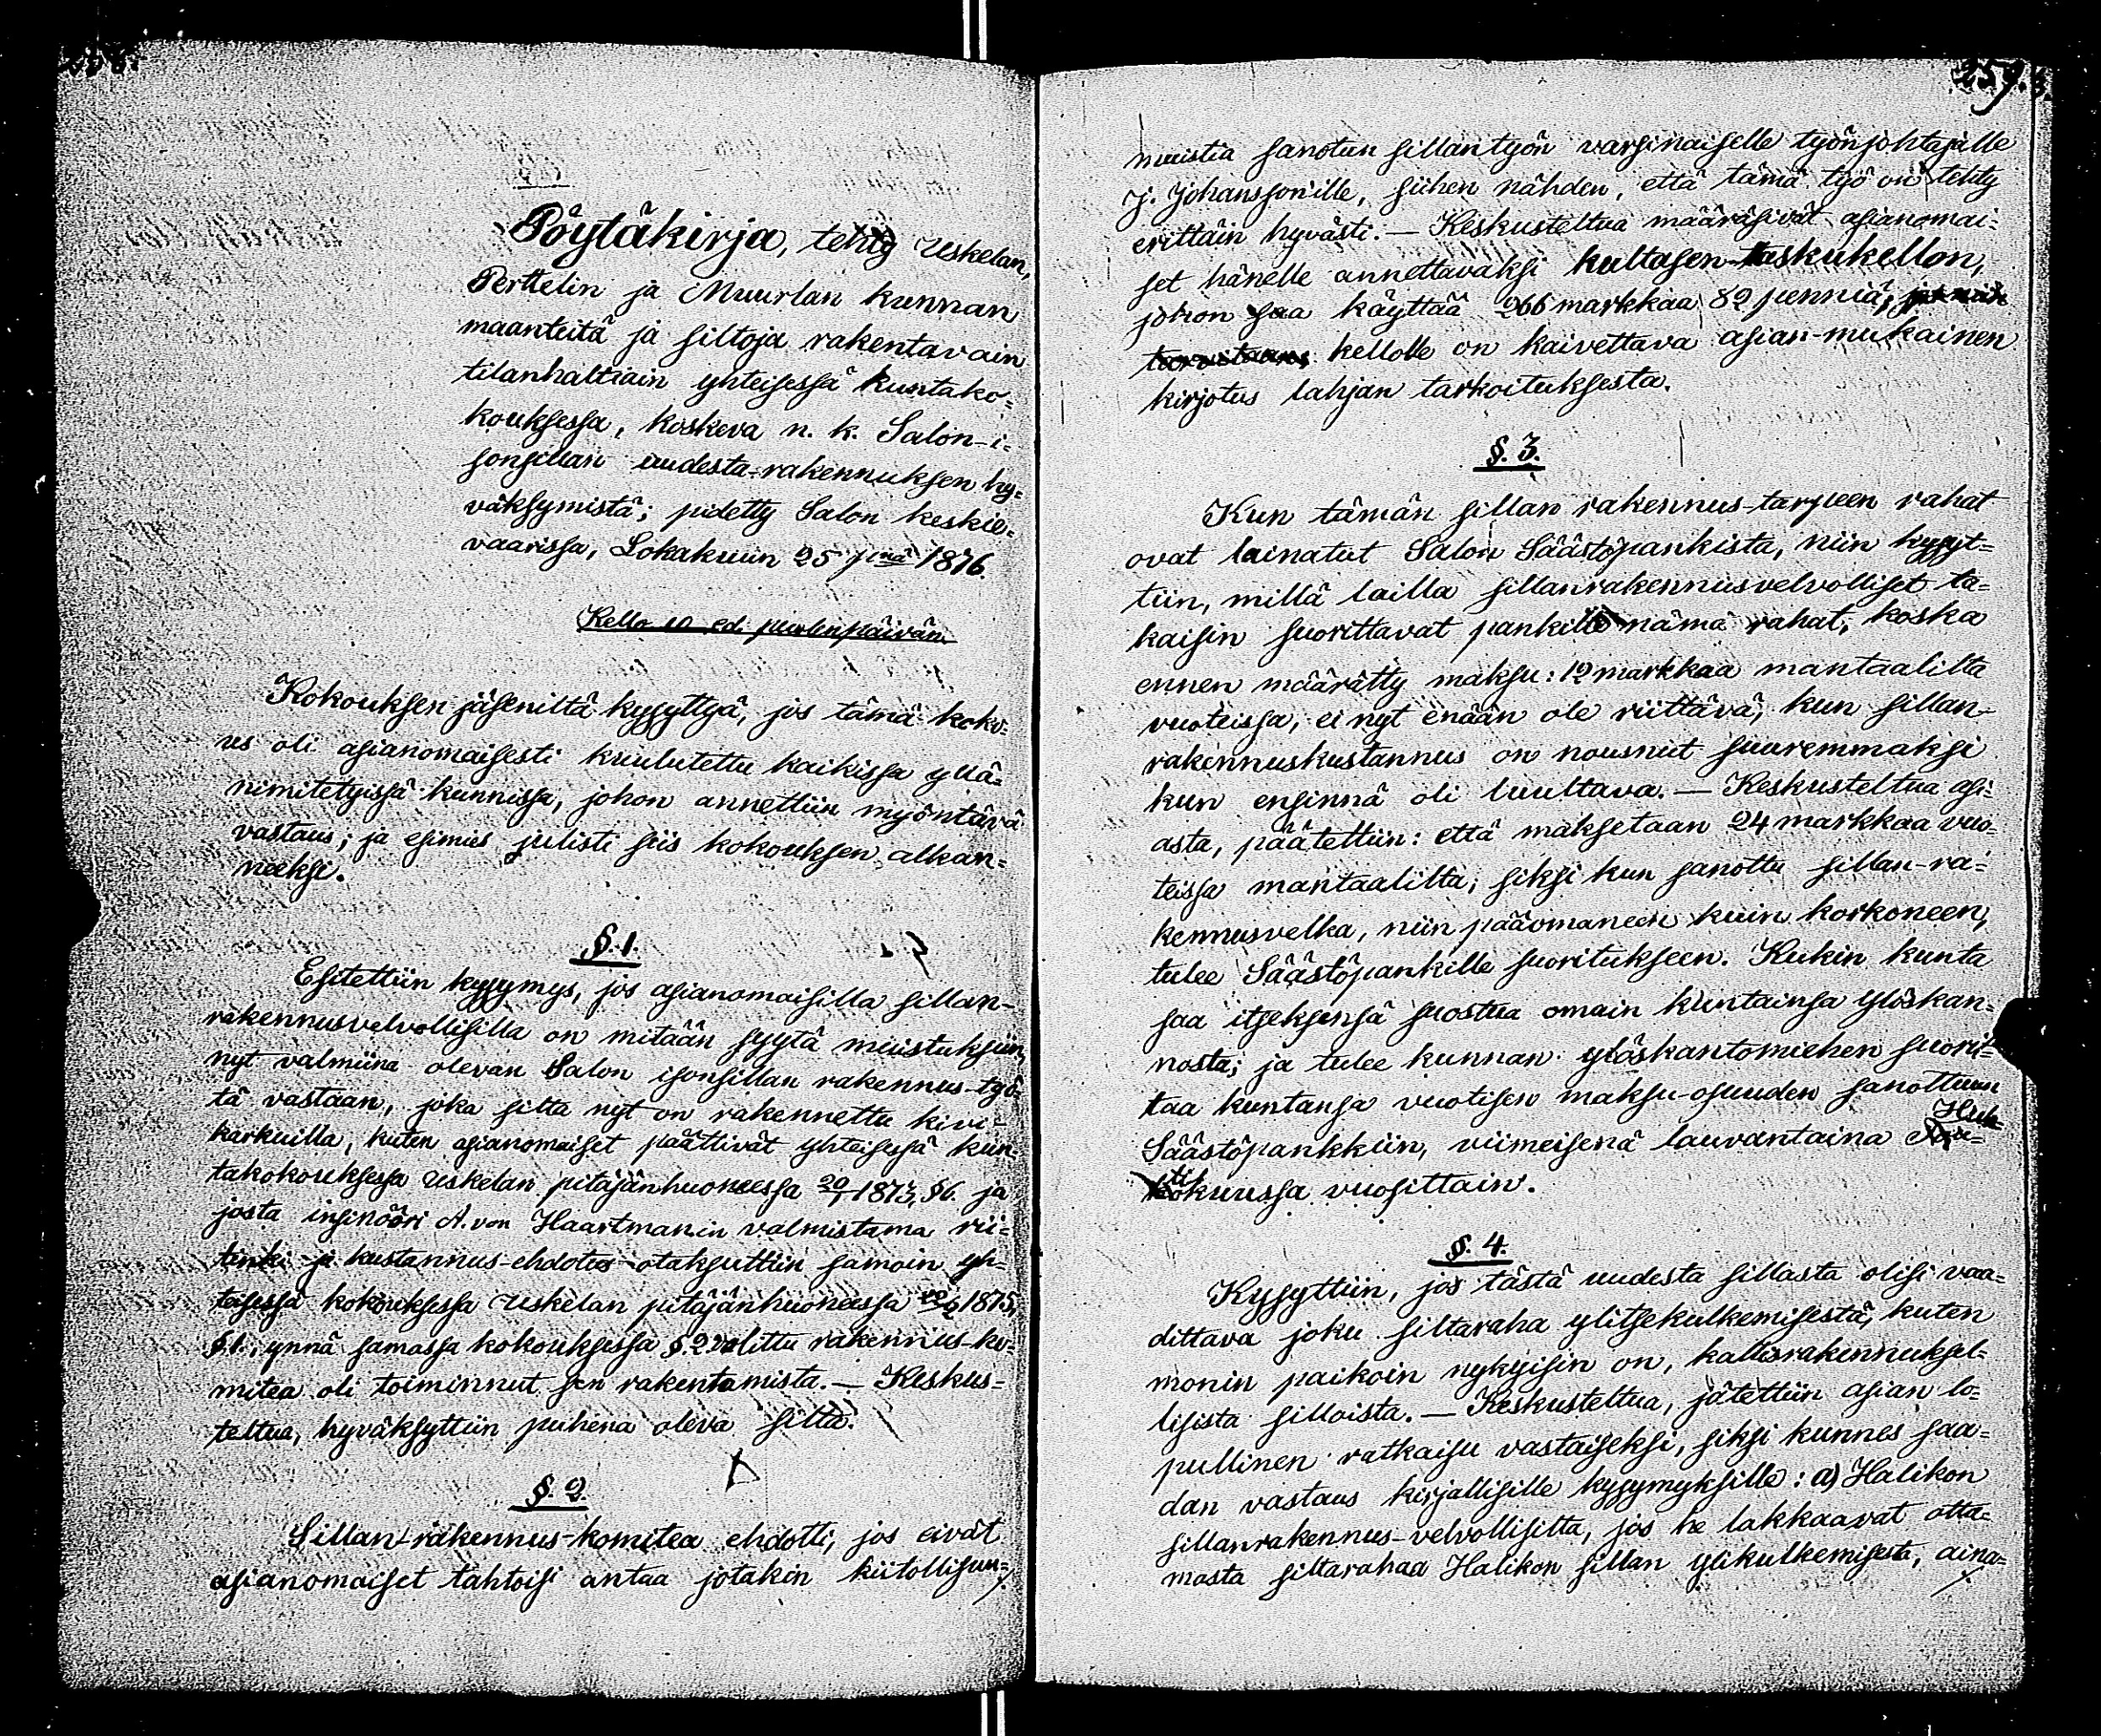 258.
Pöytäkirja, tehty Uskelan,
Perttelin ja Muurlan kunnan
maanteitä ja siltoja rakentavain
tilanhaltiain yhteisessä kuntako=
kouksessa, koskeva n. k. Salon-i=
sonsillan uudesta-rakennuksen hy=
väksymistä; pidetty Salon keskie=
vaarissa, Lokakuun 25 pnä 1876.
Kello 10 ed. puolenpäivän.
Kokouksen jäseniltä kysyttyä, jos tämä koko=
us oli asianomaisesti kuulutettu kaikissa yllä=
nimitetyissä kunnissa, johon annettiin myöntävä
vastaus; ja esimies julisti siis kokouksen alkan=
neeksi.
§. 1.
Esitettiin kysymys, jos asianomaisilla sillan-
rakennusvelvollisilla on mitään syytä muistuksiin,
nyt valmiina olevan Salon isonsillan rakennus-työ=
tä vastaan, joka silta nyt on rakennettu kivi=
karkuilla, kuten asianomaiset päättivät yhteisessä kun=
takokouksessa Uskelan pitäjänhuoneessa 1873, §6. ja
josta insinööri A. von Haartman.in valmistama rii=
tinki ja kustannus-ehdotus otaksuttiin samoin yh=
teisessä kokouksessa Uskelan pitäjänhuoneessa 1875,
§.1., ynnä samassa kokouksessa §.2 valittu rakennus-ko=
mitea oli toiminnut sen rakentamista. — Keskus=
teltua, hyväksyttiin puhena oleva silta.
§. 2.
Sillan-rakennus-komitea ehdotti, jos eivät
asianomaiset tahtoisi antaa jotakin kiitollisuu=
259.
muistia sanotun sillantyön varsinaiselle työnjohtajalle
J. Johansson'ille, siihen nähden, että tämä työ on tehty
erittäin hyvästi. — Keskusteltua määräsivät asianomai=
set hänelle annettavaksi kultasen-taskukellon,
johon saa käyttää 266 markkaa 82 penniä,
kellolle on kaivettava asian-mukainen
kirjotus lahjan tarkoituksesta.
§. 3.
Kun tämän sillan rakennus-tarpeen rahat
ovat lainatut Salon Säästöpankista, niin kysyt=
tiin, millä lailla sillanrakennusvelvolliset ta=
kaisin suorittavat pankille nämä rahat, koska
ennen määrätty maksu: 12 markkaa mantaalilta
vuoteissa, ei nyt enään ole riittävä, kun sillan-
rakennuskustannus on nousnut suuremmaksi
kun ensinnä oli luultava. — Keskusteltua asi=
asta, päätettiin: että maksetaan 24 markkaa vuo=
teissa mantaalilta, siksi kun sanottu sillan-ra=
kennusvelka, niin pääomaneen kuin korkoneen,
tulee Säästöpankille suoritukseen. Kukin kunta
saa itseksensä suostua omain kuntainsa ylöskan=
nosta; ja tulee kunnan ylöskantomiehen suorit=
taa kuntansa vuotisen maksu-osuuden sanottuun
Säästöpankkiin, viimeisenä lauvantaina Huh=
tikuussa vuosittain.
§. 4.
Kysyttiin, jos tästä uudesta sillasta olisi vaa=
dittava joku siltaraha ylitsekulkemisestä, kuten
monin paikoin nykyisin on, kallisrakennuksel=
lisista silloista. — Keskusteltua, jätettiin asian lo=
pullinen ratkaisu vastaiseksi, siksi kunnes saa=
dan vastaus kirjallisille kysymyksille: a) Halikon
sillanrakennus-velvollisilta, jos he lakkaavat otta=
masta siltarahaa Halikon sillan ylikulkemisesta, aina=